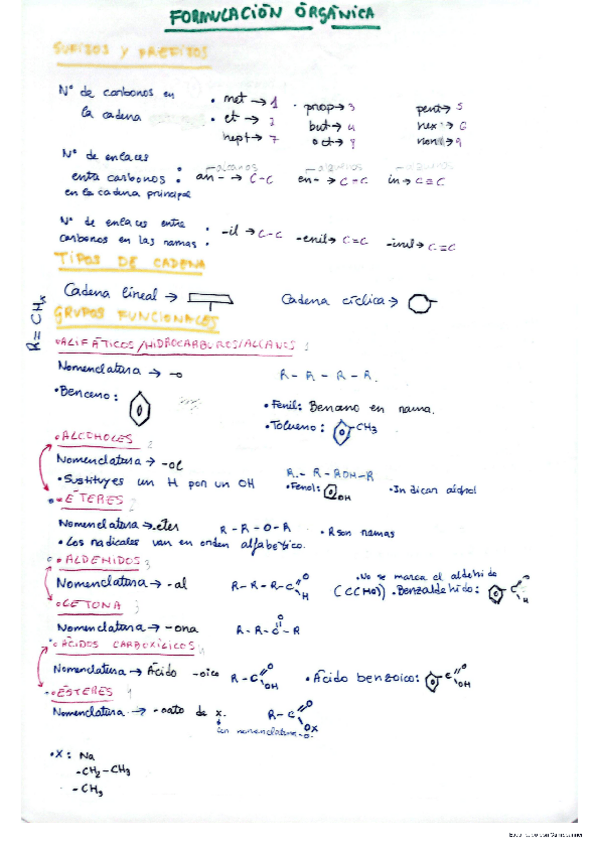 FORMULACIÓN ORGÁNICA
SUFIJOS Y PREFIJOS
Nº de carbonos en la cadena
• met → 1
• prop → 3
pent → 5
• et → 2
but → 4
hex → 6
hept → 7
oct → 8
non → 9
Nº de enlaces entre carbonos en la cadena principal
an- → C-C
en- → C=C
in → C≡C
Nº de enlaces entre carbonos en las ramas
-il → C-C
-enil → C=C
-inil → C≡C
TIPOS DE CADENA
Cadena lineal →
Cadena cíclica →
R= CHx
GRUPOS FUNCIONALES
•ALIFÁTICOS/HIDROCARBUROS/ALCANOS
Nomenclatura → -o
R-R-R-R.
•Benceno:
•Fenil: Benceno en rama.
•Tolueno: -CH3
•ALCOHOLES
Nomenclatura → -ol
R-R-ROH-R
•Sustituyes un H por un OH
•Fenol: OH
•Indican alcohol
•ÉTERES
Nomenclatura → .eter
R-R-O-R
•R son ramas
•Los radicales van en orden alfabetico.
•ALDEHIDOS
Nomenclatura → -al
R-R-R-C O H
•No se marca el aldehido
(C(CHO)) •Benzaldehido: C O H
•CETONA
Nomenclatura → -ona
R-R-C-R O
•ÁCIDOS CARBOXÍLICOS
Nomenclatura → Ácido -oico
R-C O OH
•Ácido benzoico: C O OH
•ÉSTERES
Nomenclatura → -oato de x.
R-C O OX
•X: Na
-CH2-CH3
-CH3